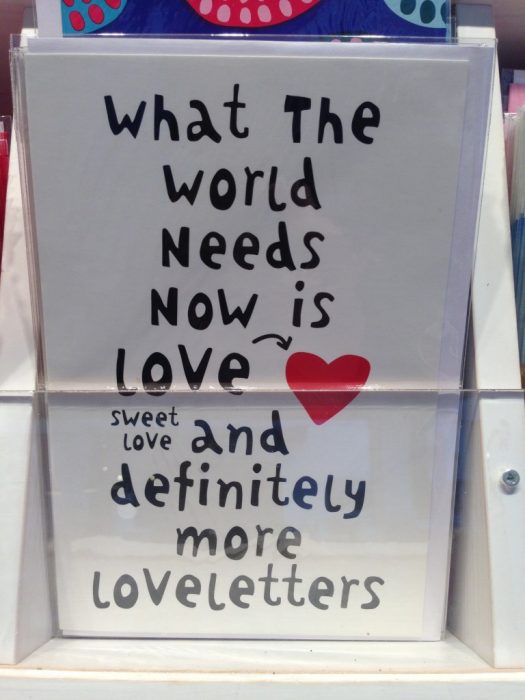 What The
World
Needs
Now is
Love
sweet
Love and
definitely
more
Loveletters